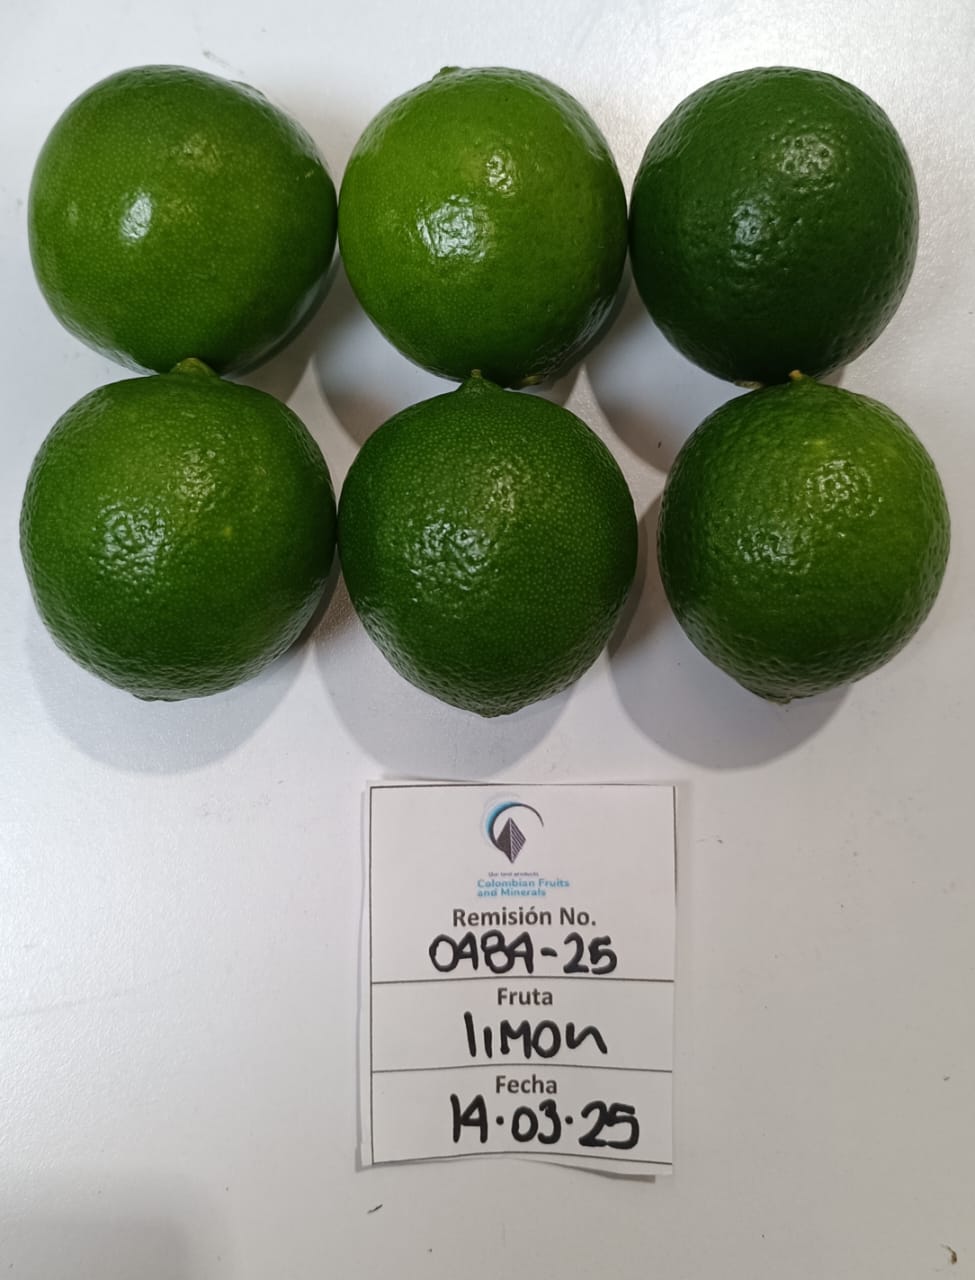 Our land products
Colombian Fruits
and Minerals
Remisión No.
0484-25
Fruta
limon
Fecha
14.03.25